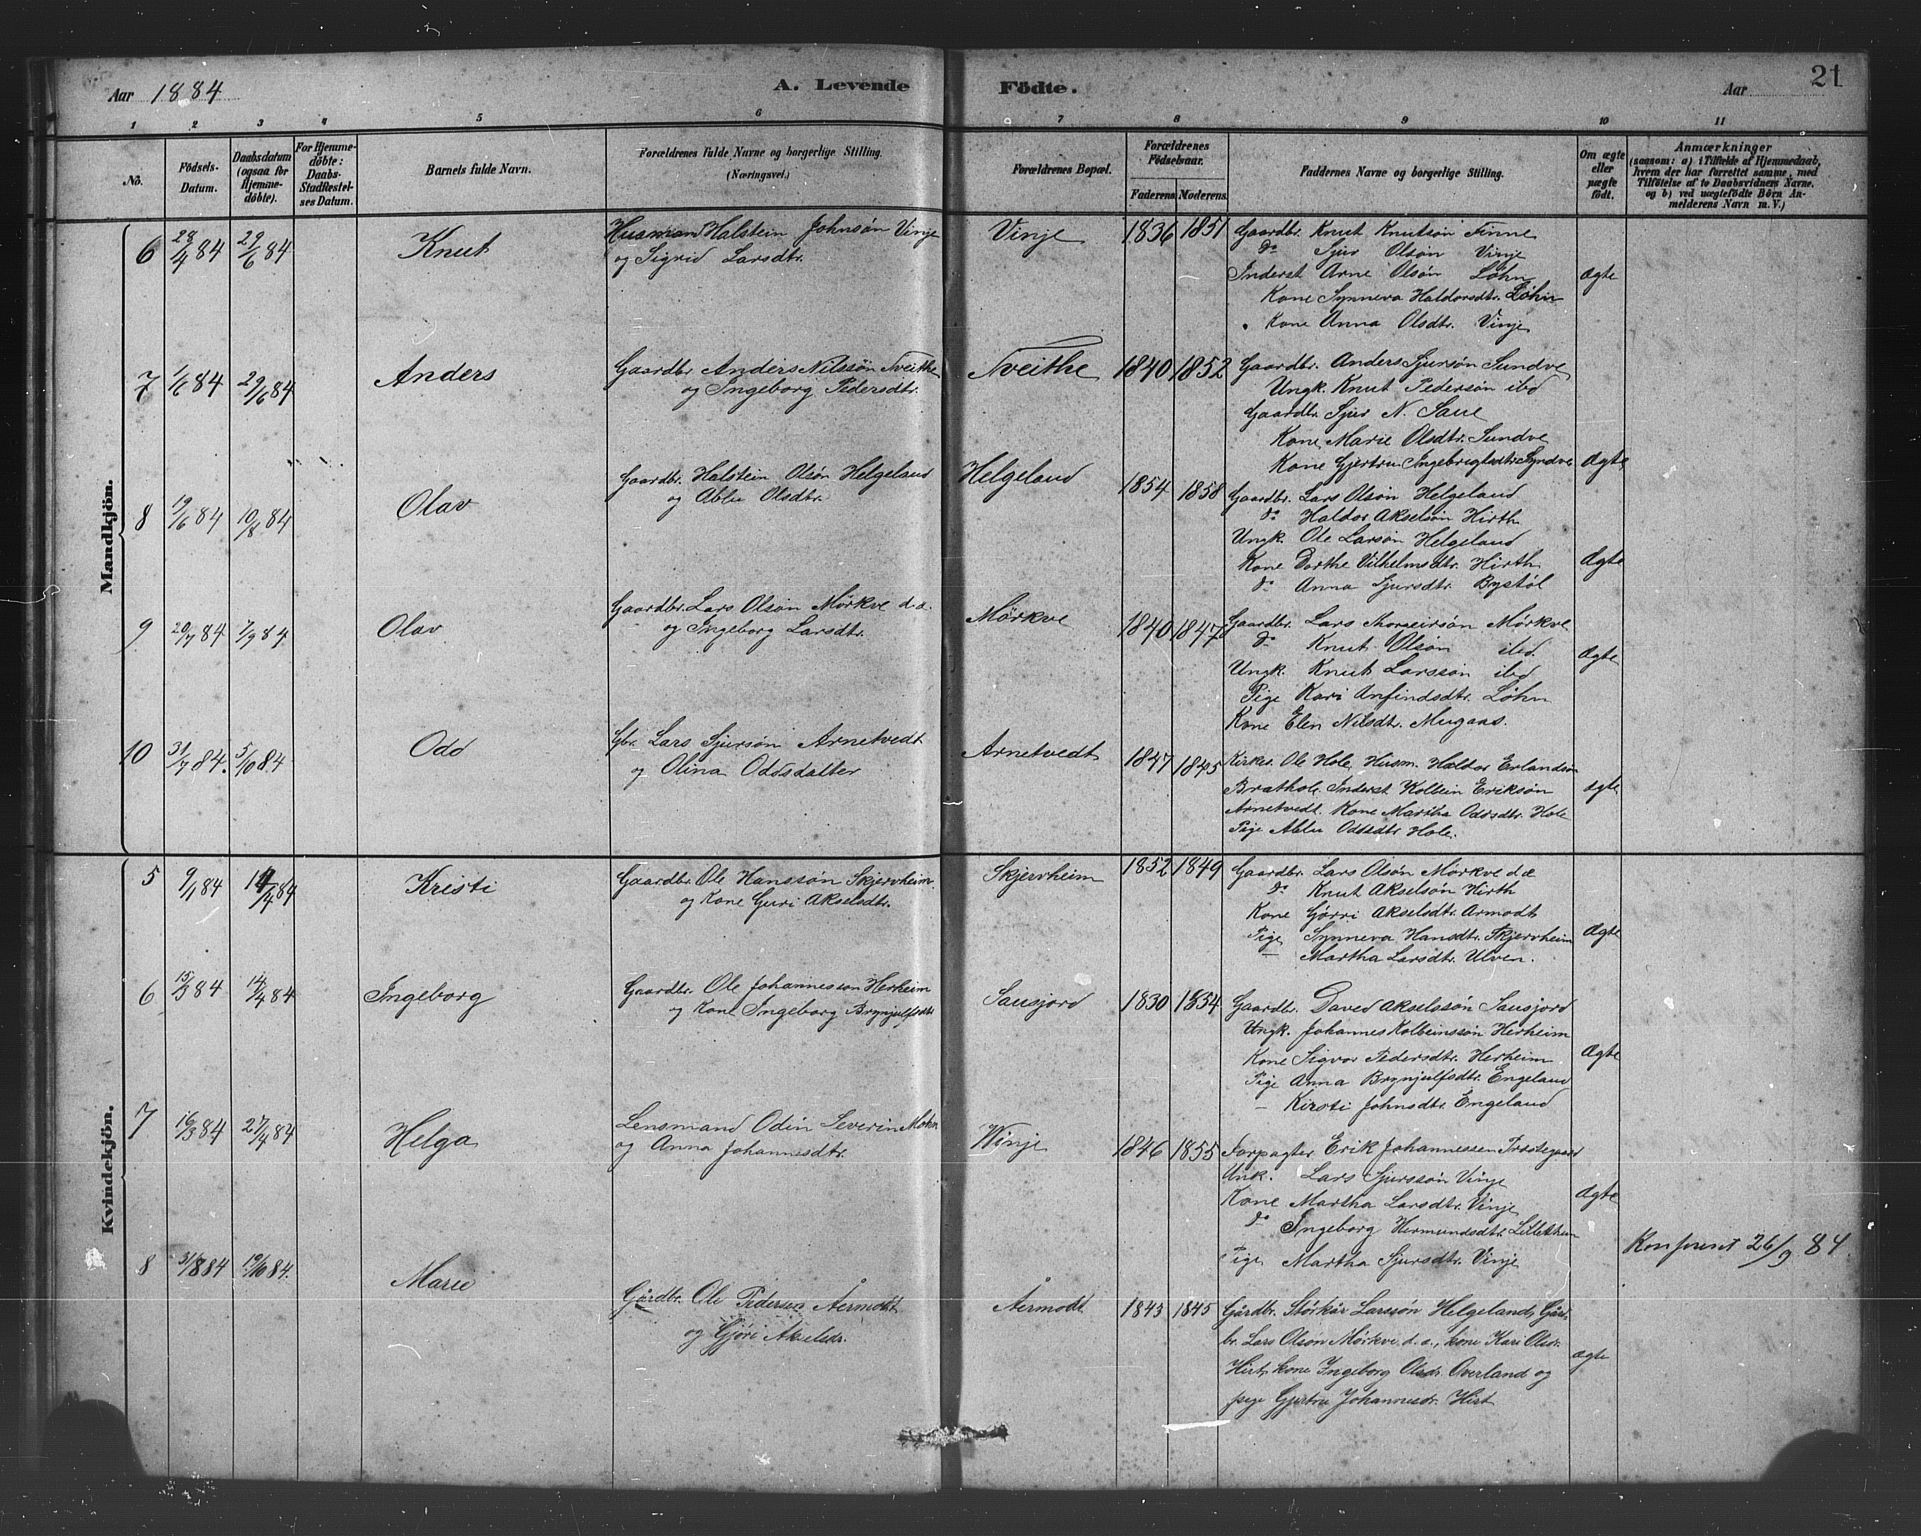 Aar 1884
A. Levende
Födte.
Aar
21
1 2 3 4 5 6 7 8 9 10 11
No.
Födsels-
Datum.
Daabsdatum
(ogsaa for
Hjemme-
döbte).
For Hjemme-
döbte:
Daabs-
Stadfæstel-
ses Datum.
Barnets fulde Navn.
Forældrenes fulde Navne og borgerlige Stilling.
(Næringsvei.)
Forældrenes Bopæl.
Forældrenes
Födselsaar.
Faderens. Moderens.
Faddernes Navne og borgerlige Stilling.
Om ægte
eller
uægte
födt.
Anmærkninger
(saasom: a) i Tilfælde af Hjemmedaab,
hvem der har forrettet samme, med
Tilföielse af to Daabsvidners Navne.
og b) ved uægtefödte Börn An-
melderens Navn m. V.)
Mandkjön.
6 28/4 84 29/6 84 Knut
Husmand Halstein Johnsøn Vinje
og Sigrid Larsdtr.
Vinje 1836 1851
Gaardbr. Knut Knutsøn Finne
do Sjur Olsøn Vinje
Inderst Arne Olsøn Løhn
Kone Synneva Haldorsdtr. Løhn
Kone Anna Olsdtr. Vinje
Ægte
7 1/6 84 29/6 84 Anders
Gaardbr. Anders Nilssøn Tveithe
og Ingeborg Pedersdtr.
Tveithe 1840 1852
Gaardbr. Anders Sjursøn Sundve
Ungk. Knut Pedersøn ibd
Gaardbr. Sjur N. Saue
Kone Marie Olsdtr. Sundve
Kone Gjertru Ingebrigtsdtr. Syndve
Ægte
8 19/6 84 10/8 84 Olav
Gaardbr. Halstein Olsøn Helgeland
og Ablu Olsdtr.
Helgeland 1854 1858
Gaardbr. Lars Olsøn Helgeland
do Haldor Akselsøn Hirth
Ungk. Ole Larsøn Helgeland
Kone Dorthe Vilhelmsdtr. Hirth
do Anna Sjursdtr. Bystøl
Ægte
9 20/7 84 7/9 84 Olav
Gaardbr. Lars Olsøn Mørkve d.æ.
og Ingeborg Larsdtr.
Mørkve 1840 1847
Gaardbr. Lars Thorseirsøn Mørkve
do Knut Olsøn ibd.
Ungk. Knut Larssøn ibd
Pige Kari Anfindsdtr. Løhn
Kone Elen Nilsdtr. Mugaas.
Ægte
10 31/7 84. 5/10 84 Odd
Gbr. Lars Sjursøn Arnetvedt
og Olina Oddsdatter
Arnetvedt 1847 1845
Kirkes. Ole Hole, Husm. Haldor Erlandsøn
Brathole. Inderst Kolbein Eriksøn
Arnetvedt. Kone Martha Oddsdtr. Hole
Pige Ablu Oddsdtr. Hole.
Ægte
Kvindekjön.
5 9/1 84 14/4 84 Kristi
Gaardbr. Ole Hanssøn Skjervheim
og Kone Guri Akselsdtr.
Skjervheim 1852 1849
Gaardbr. Lars Olsøn Mørkve d.æ
do Knut Akselsøn Hirth
Kone Gjørri Akselsdtr. Armodt
Pige Synneva Hansdtr. Skjervheim
— Martha Larsdtr. Ulven.
Ægte
6 15/3 84 14/4 84 Ingeborg
Gaardbr. Ole Johannesson Herheim
og Kone Ingeborg Brynjulfsdtr
Sausjord 1830 1834
Gaardbr. David Akselssøn Sausjord
Ungk. Johannes Kolbeinssøn Herheim
Kone Sigvor Pedersdtr. Herheim
Pige Anna Brynjulfsdtr. Engeland
— Kirsti Johnsdtr. Engeland
Ægte
7 16/3 84 27/4 84 Helga
Lensmand Odin Severin
og Anna Johannesdtr.
Winje 1846 1855
Forpagter Erik Johannessen
Unk. Lars Sjurssøn Vinje
Kone Martha Larsdtr. Vinje
do Ingeborg Hermundsdtr. Lillethun
Pige Martha Sjursdtr. Vinje
Ægte
Konfirment 26/9 84.
8 31/8 84 19/10 84. Marie
Gårdbr. Ole Pedersen Åermodt
og Gjøri Akselsdr.
Åermodt 1843 1845
Gårdbr. Størkår Larssøn Helgeland, Gård-
br. Lars Olson Mørkve d.æ., kone Kari Olsdr.
Hirt, kone Ingeborg Olsdr. Øverland og
pige Gjertru Johannesdr. Hirt
Ægte